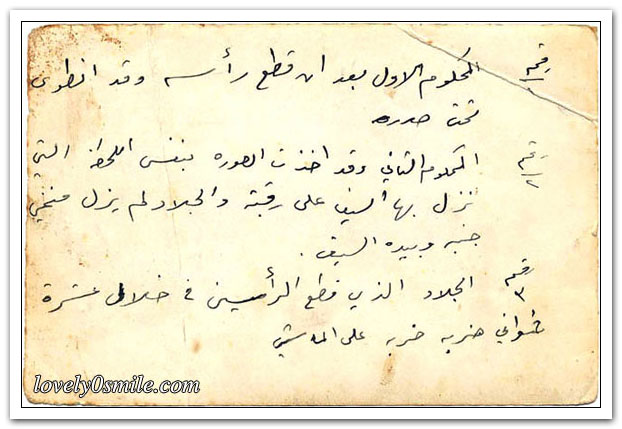 رقم ١ المحكوم الاول بعد ان قطع رأسه وقد انطوى
تحت صدره
رقم ٢ المحكوم الثاني وقد اخذت الصوره بنفس اللحظه التي
نزل بها السيف على رقبته والجلاد لم يزل منحني
جنبه وبيده السيف .
رقم ٣ الجلاد الذي قطع الرأسين في خلال عشرة
ثواني ضربه ضربه على الماشي
lovely0smile.com